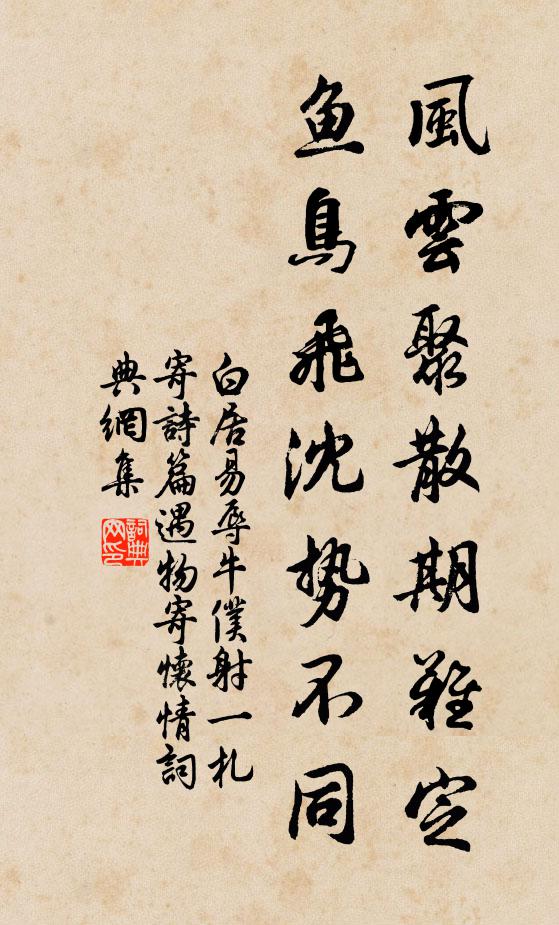 風雲聚散期難定
魚鳥飛沈勢不同
白居易辱牛僕射一札
寄詩篇遇物寄懷情詞
典網集
詞典
网印